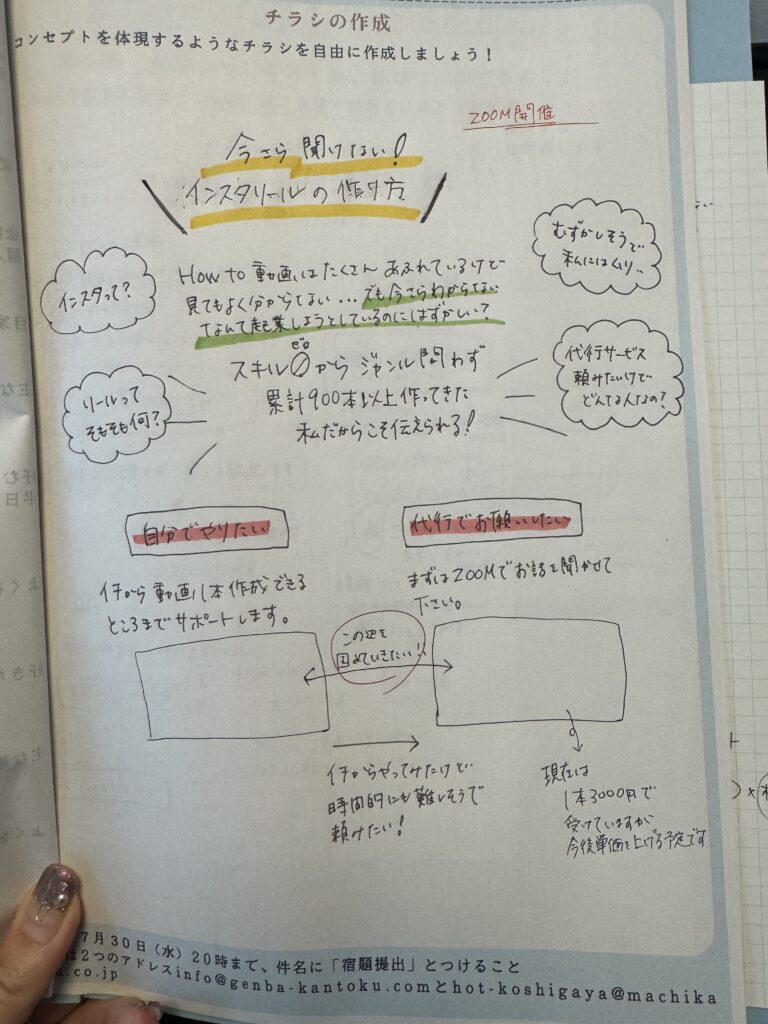 チラシの作成
コンセプトを体現するようなチラシを自由に作成しましょう！
ZOOM開催
今さら聞けない！
インスタリールの作り方
インスタって？
むずかしそうで
私にはムリ…
How to 動画はたくさんあふれているけど
見てもよく分からない…でも今さらわからない
なんて起業しようとしているのにはずかしい？
ゼロ
スキル0から ジャンル問わず
累計900本以上作ってきた
私だからこそ伝えられる！
リールって
そもそも何？
代行サービス
頼みたいけど
どんな人なの？
自分でやりたい
イチから動画1本作成できる
ところまでサポートします。
代行でお願いしたい
まずはZOOMでお話を聞かせて
下さい。
この辺を
固めていきたい！！
イチからやってみたけど
時間的にも難しそうで
頼みたい！
現在は
1本3000円で
受けていますが
今後単価を上げる予定です
7月30日（水）20時まで、件名に「宿題提出」とつけること
は2つのアドレスinfo@genba-kantoku.comとhot-koshigaya@machika
a.co.jp